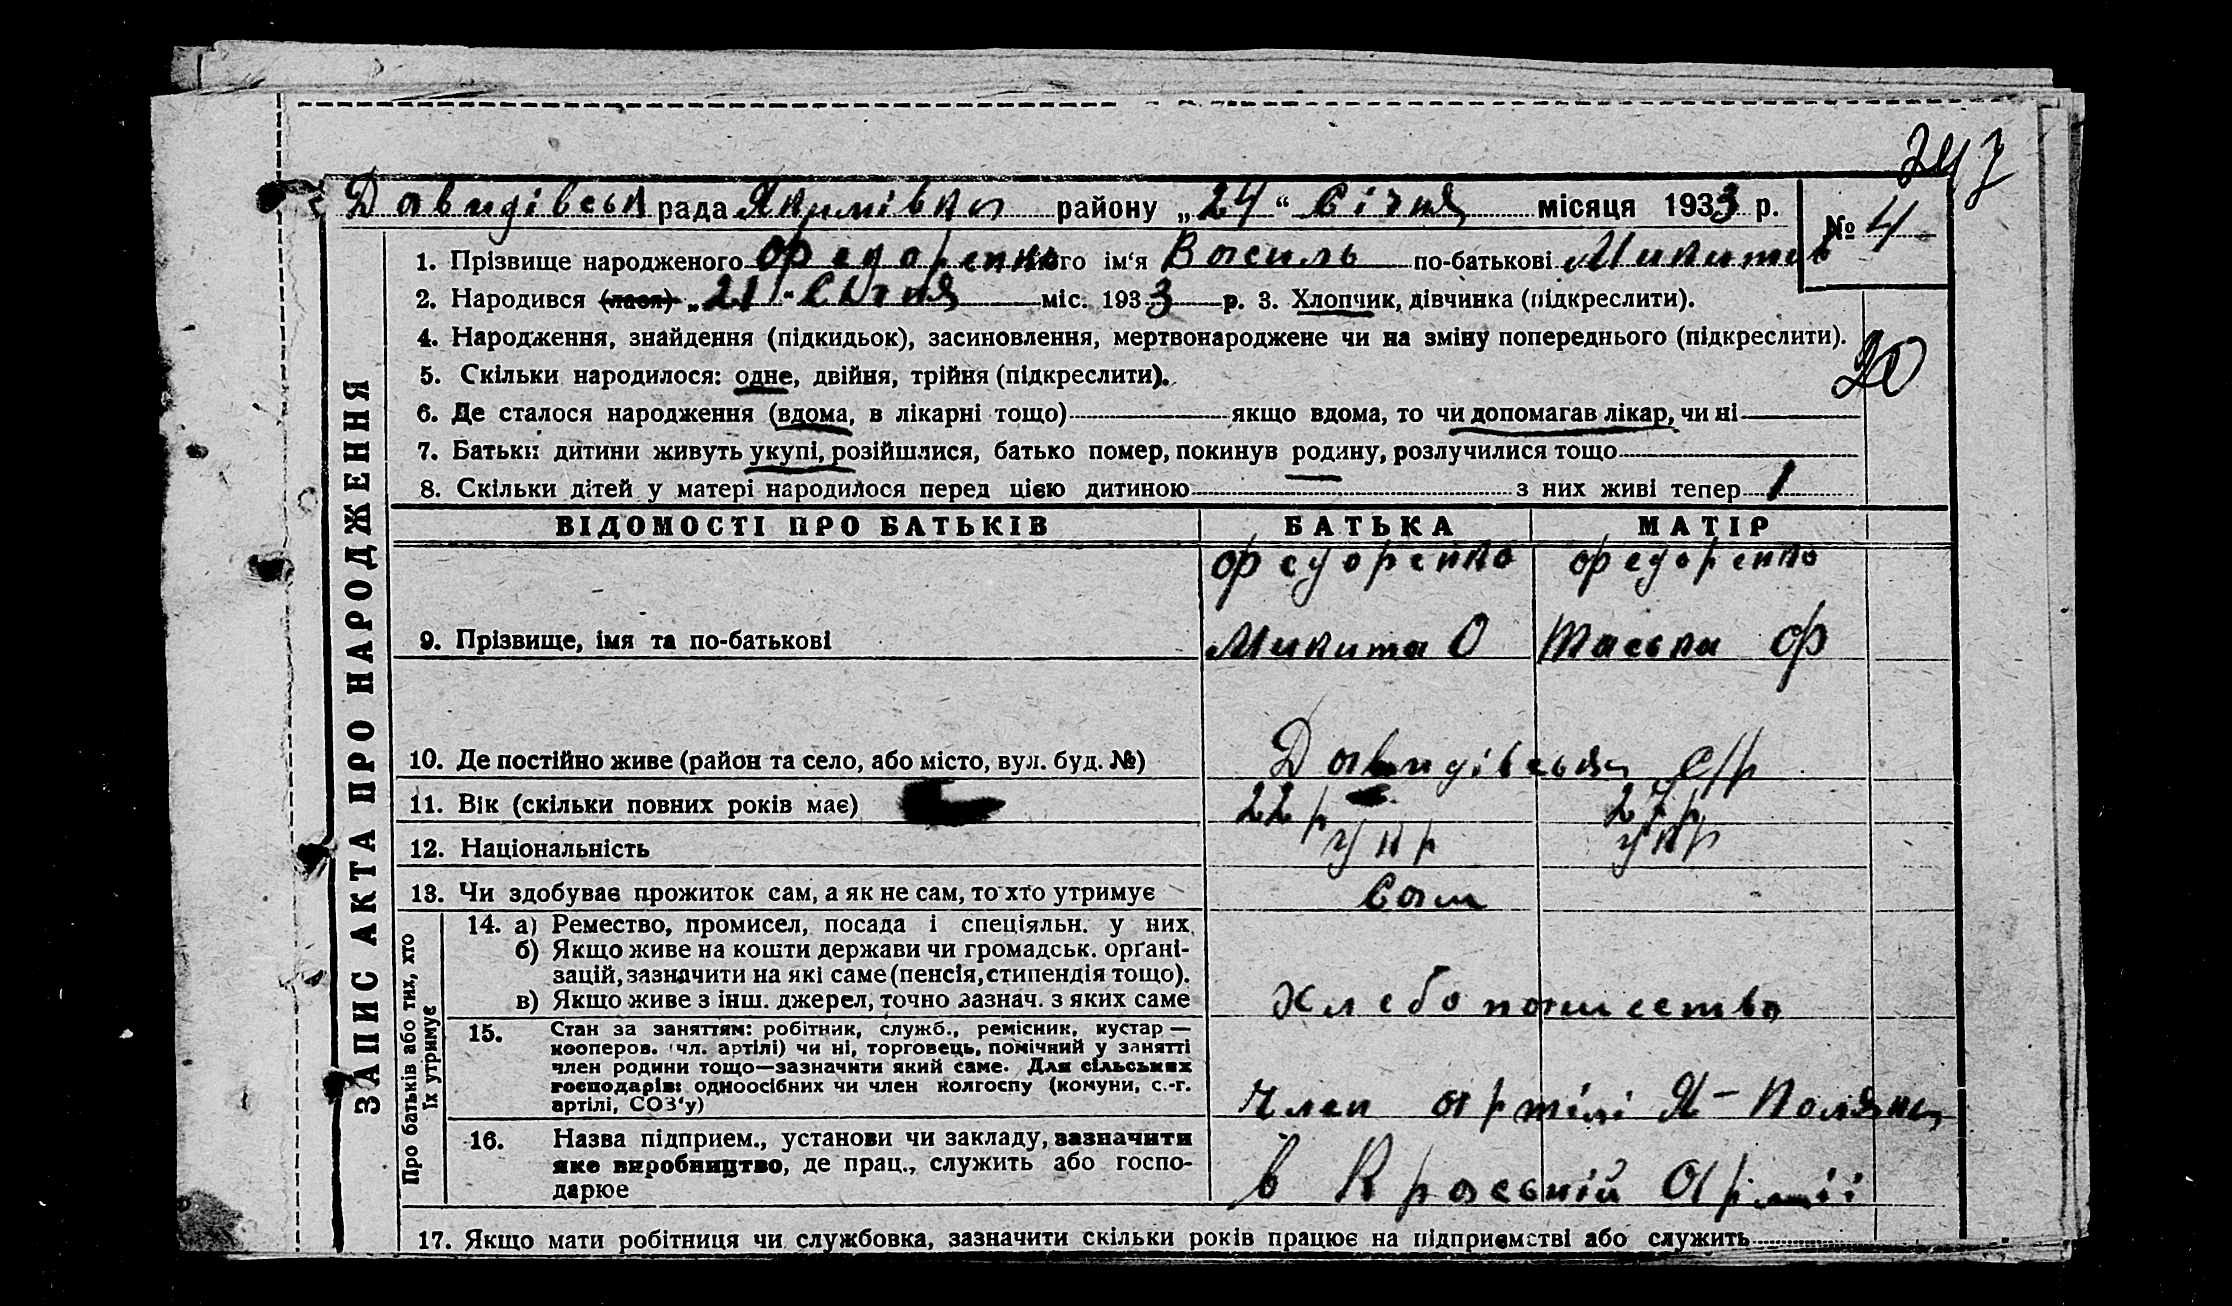 247
Давидівськ рада Якимівка району „24“ Січня місяця 1933 р. № 4
1. Прізвище народженого Федоренко його ім‘я Василь по-батькові Микитов
2. Народився (лася) „21“ Січня міс. 1933 р. 3. Хлопчик, дівчинка (підкреслити).
4. Народження, знайдення (підкидьок), засиновлення, мертвонароджене чи на зміну попереднього (підкреслити).
20
5. Скільки народилося: одне, двійня, трійня (підкреслити).
6. Де сталося народження (вдома, в лікарні тощо) якщо вдома, то чи допомагав лікар, чи ні
7. Батьки дитини живуть укупі, розійшлися, батько помер, покинув родину, розлучилися тощо
8. Скільки дітей у матері народилося перед цією дитиною — з них живі тепер 1
ЗАПИС АКТА ПРО НАРОДЖЕННЯ
ВІДОМОСТІ ПРО БАТЬКІВ БАТЬКА МАТІР
Федоренко Федоренко
9. Прізвище, імя та по-батькові Микита О Таська Ф
10. Де постійно живе (район та село, або місто, вул. буд. №) Давидівська с/р
11. Вік (скільки повних років має) 22 р 27 р
12. Національність укр укр
13. Чи здобував прожиток сам, а як не сам, то хто утримує сам
Про батьків або тих, хто
їх утримує
14. а) Ремество, промисел, посада і спеціяльн. у них
б) Якщо живе на кошти держави чи громадськ. орґані-
зацій, зазначити на які саме (пенсія, стипендія тощо).
в) Якщо живе з інш. джерел, точно зазнач. з яких саме Хлебопашество
15. Стан за заняттям: робітник, служб., ремісник, кустар —
кооперов. (чл. артілі) чи ні, торговець, помічний у занятті
член родини тощо—зазначити який саме. Для сільських
господарів: одноосібних чи член колгоспу (комуни, с.-г.
артілі, СОЗ‘у) Член артілі Я-Поляна
16. Назва підприєм., установи чи закладу, зазначити
яке виробництво, де прац., служить або госпо-
дарює в Красьній Армії
17. Якщо мати робітниця чи службовка, зазначити скільки років працює на підприємстві або служить